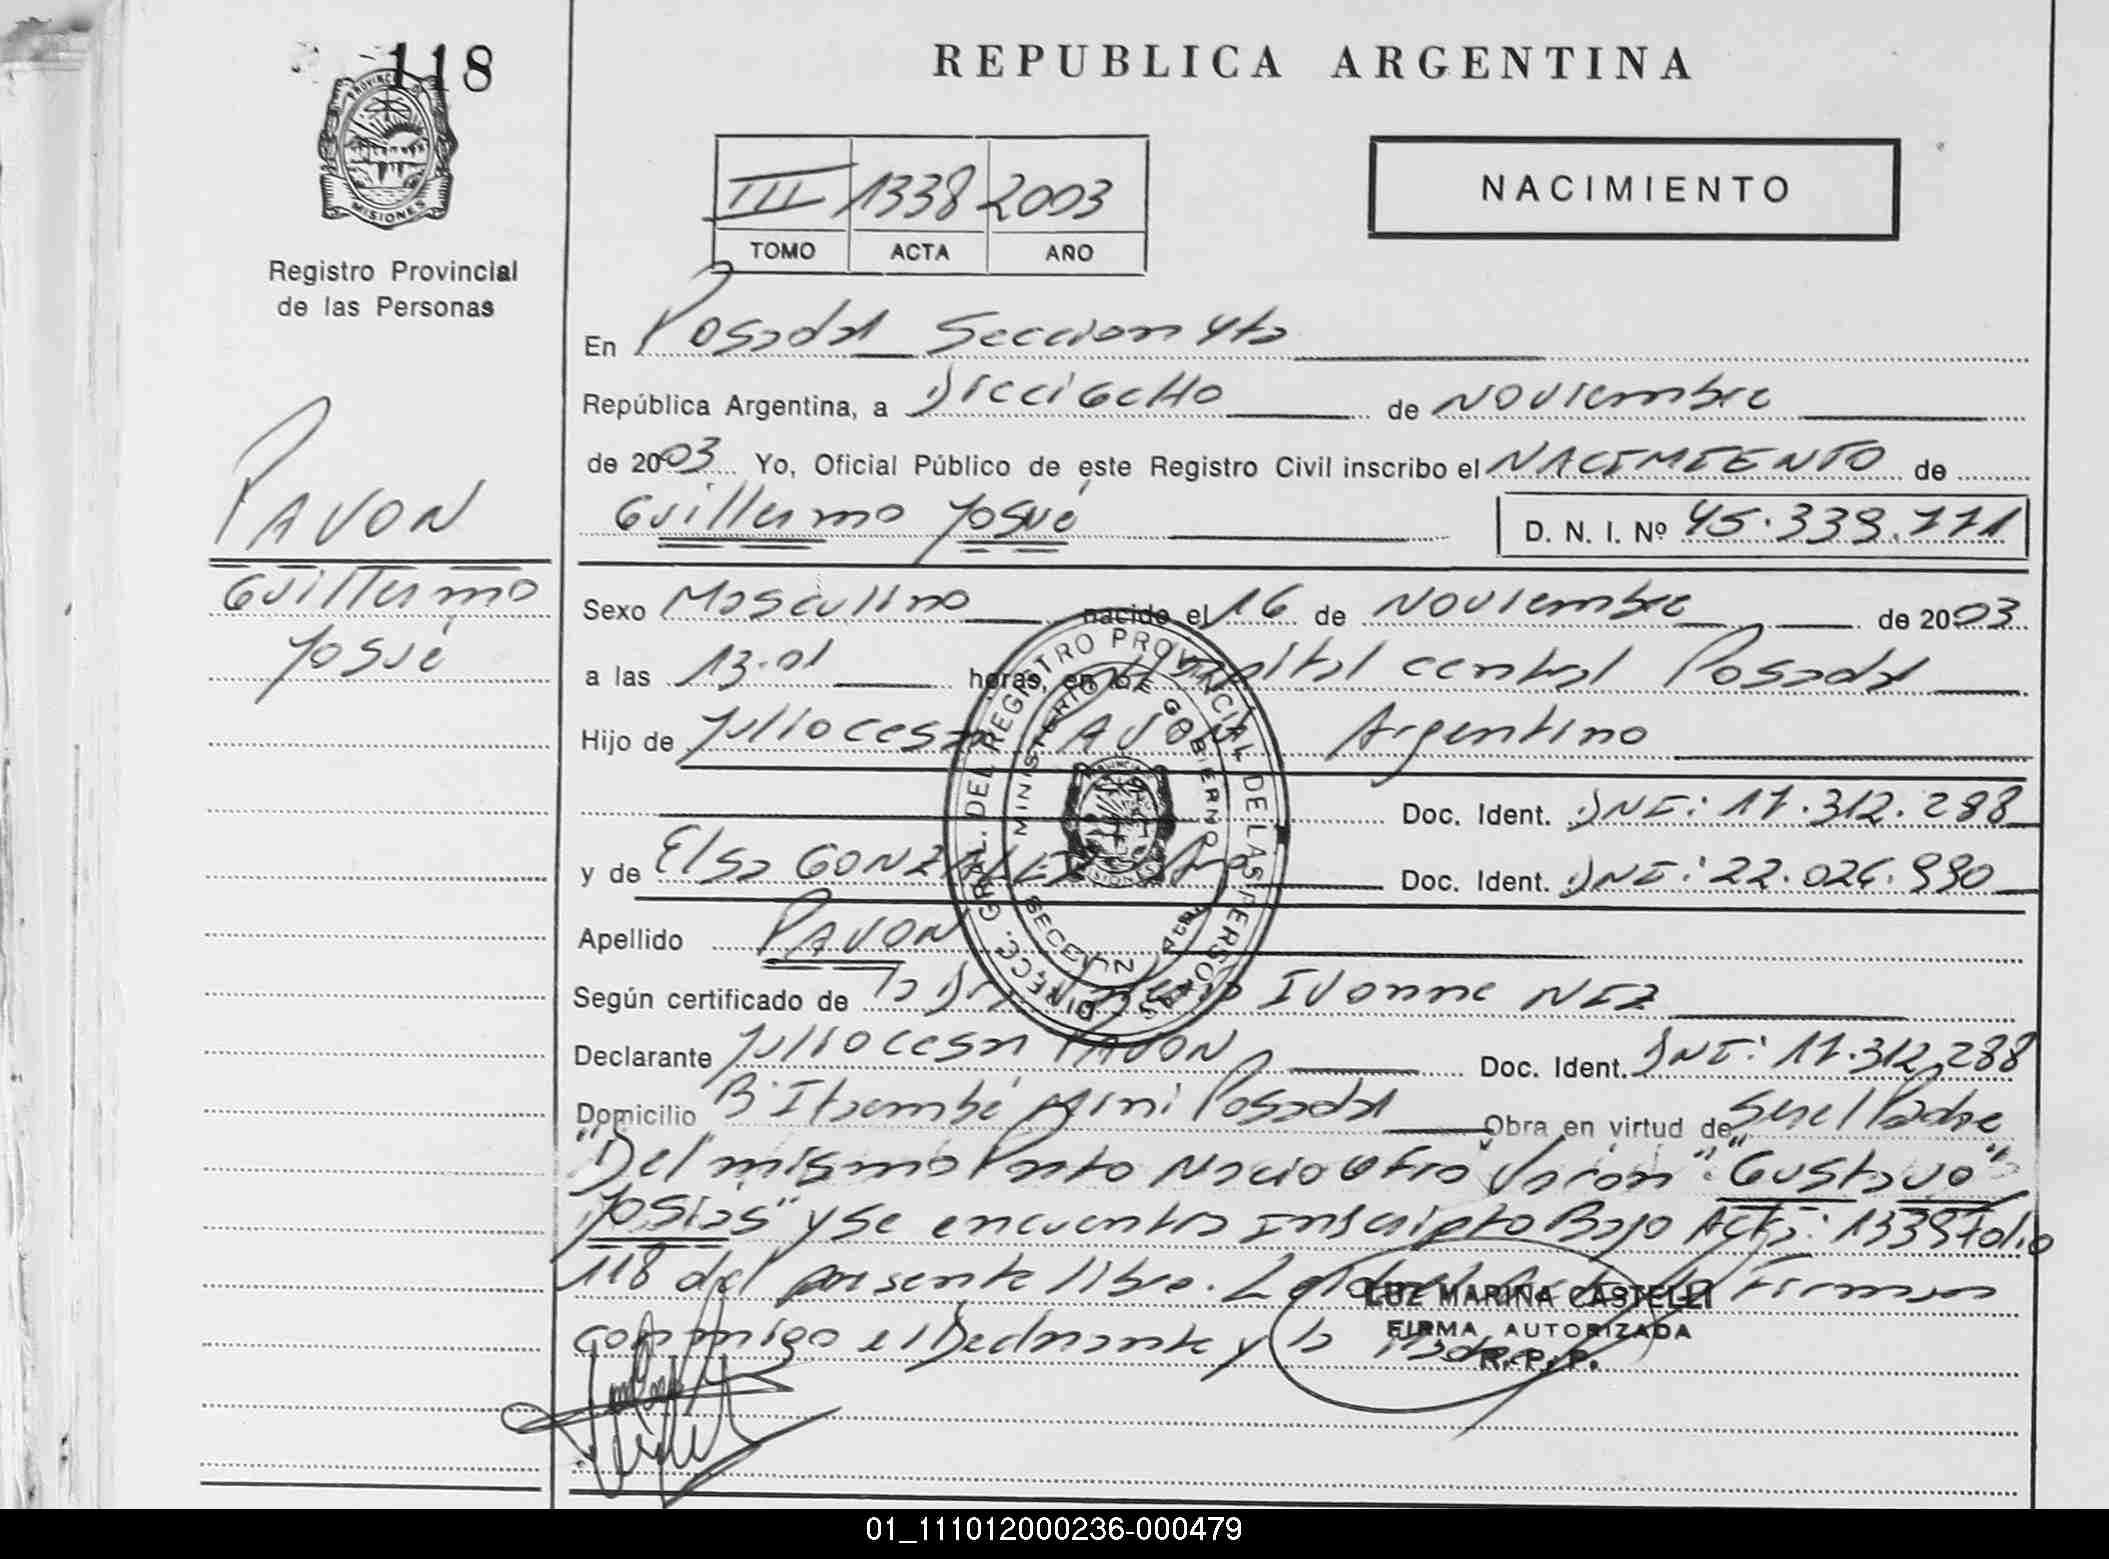 118
PROVINCIA D
MISIONES
Registro Provincial
de las Personas
REPUBLICA ARGENTINA
NACIMIENTO
III 1338 2003
TOMO ACTA AÑO
En Posadas Seccion 4ta
República Argentina, a Dieciocho de Noviembre
de 2003 Yo, Oficial Público de este Registro Civil inscribo el NACIMIENTO de
Guillermo Josué D. N. I. Nº 45.339.771
PAVON
Guillermo
Josué
Sexo Masculino nacido el 16 de Noviembre de 2003
a las 13.01 horas, en Hospital central Posadas
Hijo de Julio Cesar PAVON Argentino
Doc. Ident. DNI: 17.312.288
y de Elsa GONZALEZ Arg Doc. Ident. DNI: 22.026.990
Apellido PAVON
Según certificado de la Dra Ivonne NEZ
Declarante Julio Cesar PAVON Doc. Ident. DNI: 17.312.288
Domicilio B Itaembé Miní Posadas Obra en virtud de Ser el Padre
"Del mismo Parto Nacio Otro Varón": "Gustavo
Josías" y se encuentra Inscripto Bajo Acta: 1339 Folio
118 del presente libro. Leida el Acta Firman
conmigo el Declarante y la Madre
DIRECC. GRAL. DEL REGISTRO PROVINCIAL DE LAS PERSONAS
MINISTERIO DE GOBIERNO
SECCIÓN 4ta
LUZ MARINA CASTELLI
FIRMA AUTORIZADA
R. P. P.
01_111012000236-000479